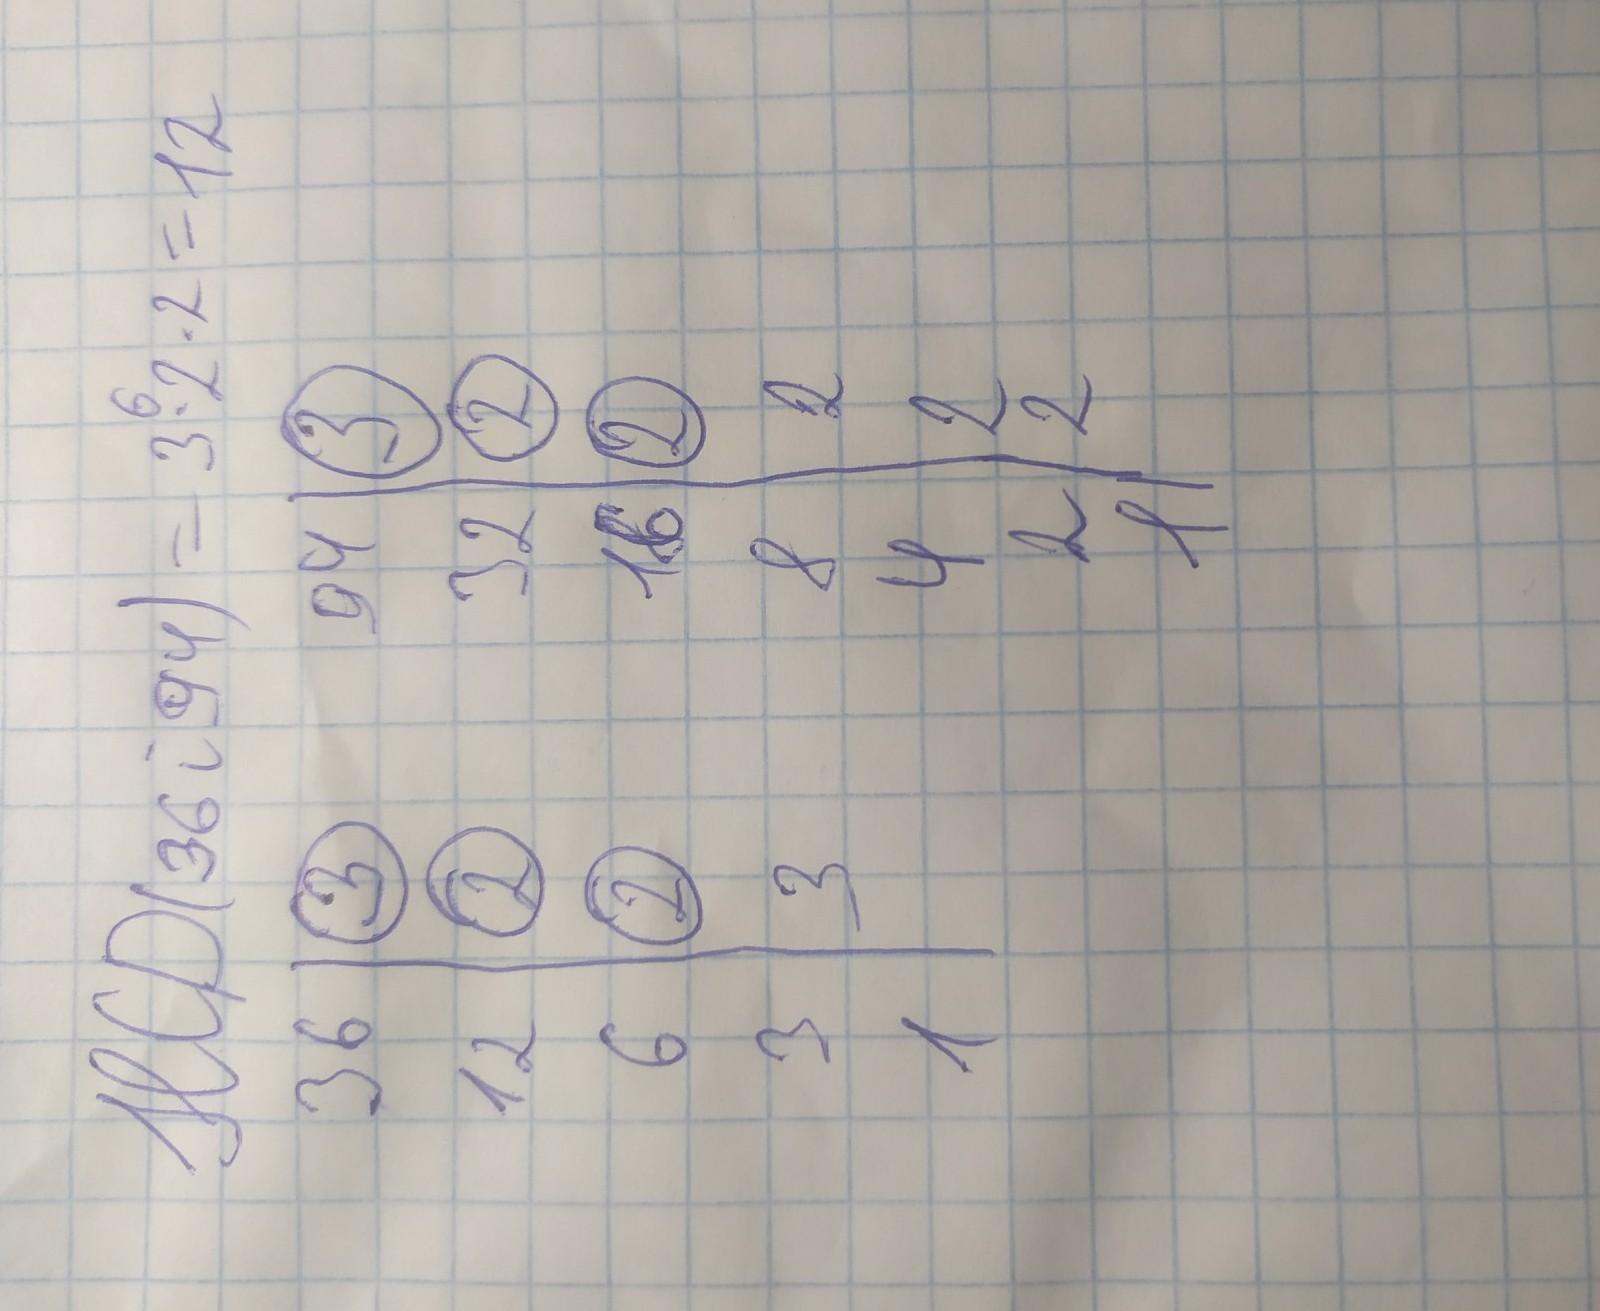 НСД(36 і 94) = 3·2·2 = 12
6
36 | 3 94 | 3
12 | 2 32 | 2
6 | 2 16 | 2
3 | 3 8 | 2
1 | 4 | 2
2 | 2
1 |